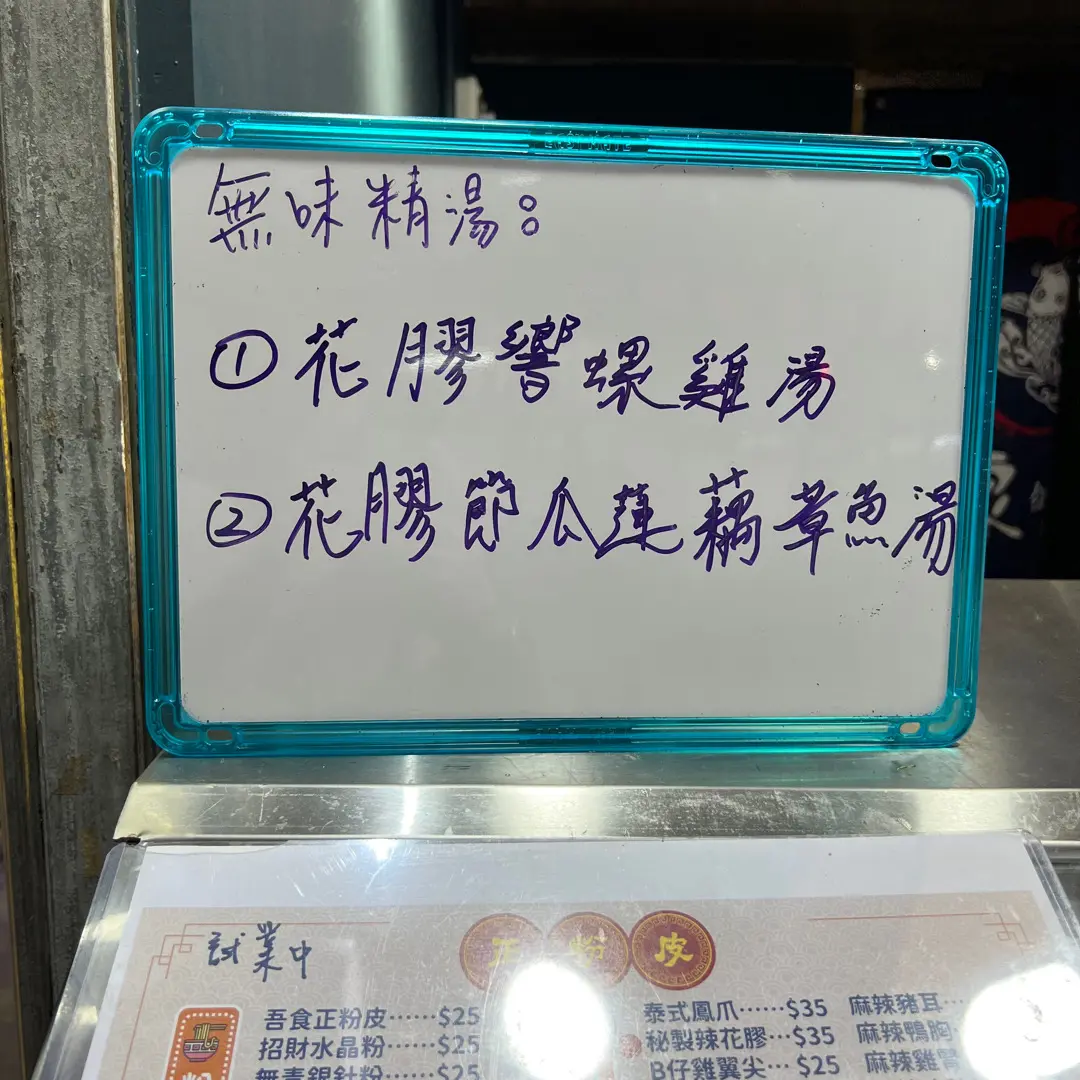 無味精湯：
①花膠響螺雞湯
②花膠節瓜蓮藕章魚湯
試業中
正粉皮
吾食正粉皮……$25
招財水晶粉……$25
無青銀針粉……$25
泰式鳳爪……$35
秘製辣花膠…$35
B仔雞翼尖…$25
麻辣豬耳…
麻辣鴨胸
麻辣雞腎